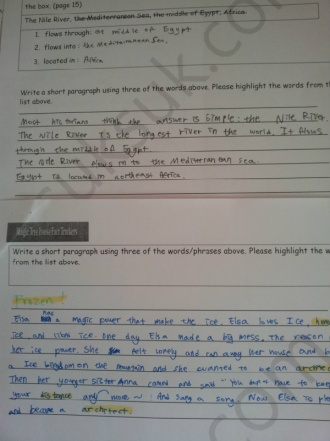 the box. (page 15)
The Nile River, the Mediterranean Sea, the middle of Egypt, Africa
1. flows through: the middle of Egypt
2. flows into: the Mediterranean Sea,
3. located in: Africa
Write a short paragraph using three of the words above. Please highlight the words from t
list above.
Most historians think the answer is simple: the Nile River.
The Nile River is the longest river in the world. It flows
through the middle of Egypt.
The Nile River flows in to the Mediterranean sea.
Egypt is located in northeast Africa.
Write a short paragraph using three of the words/phrases above. Please highlight the w
from the list above.
Frozen
Elsa has a magic power that make the ice. Elsa loves Ice,
ice, and ice one day Elsa made a big mess. The reason
her ice power. She felt lonely and ran away her house and
a Ice kingdom on the mountain and she wanted to be an
Then her younger sister Anna came and said "You don't have to keep
your distance any more ~ And sang a song. Now Elsa is
and became a architect.